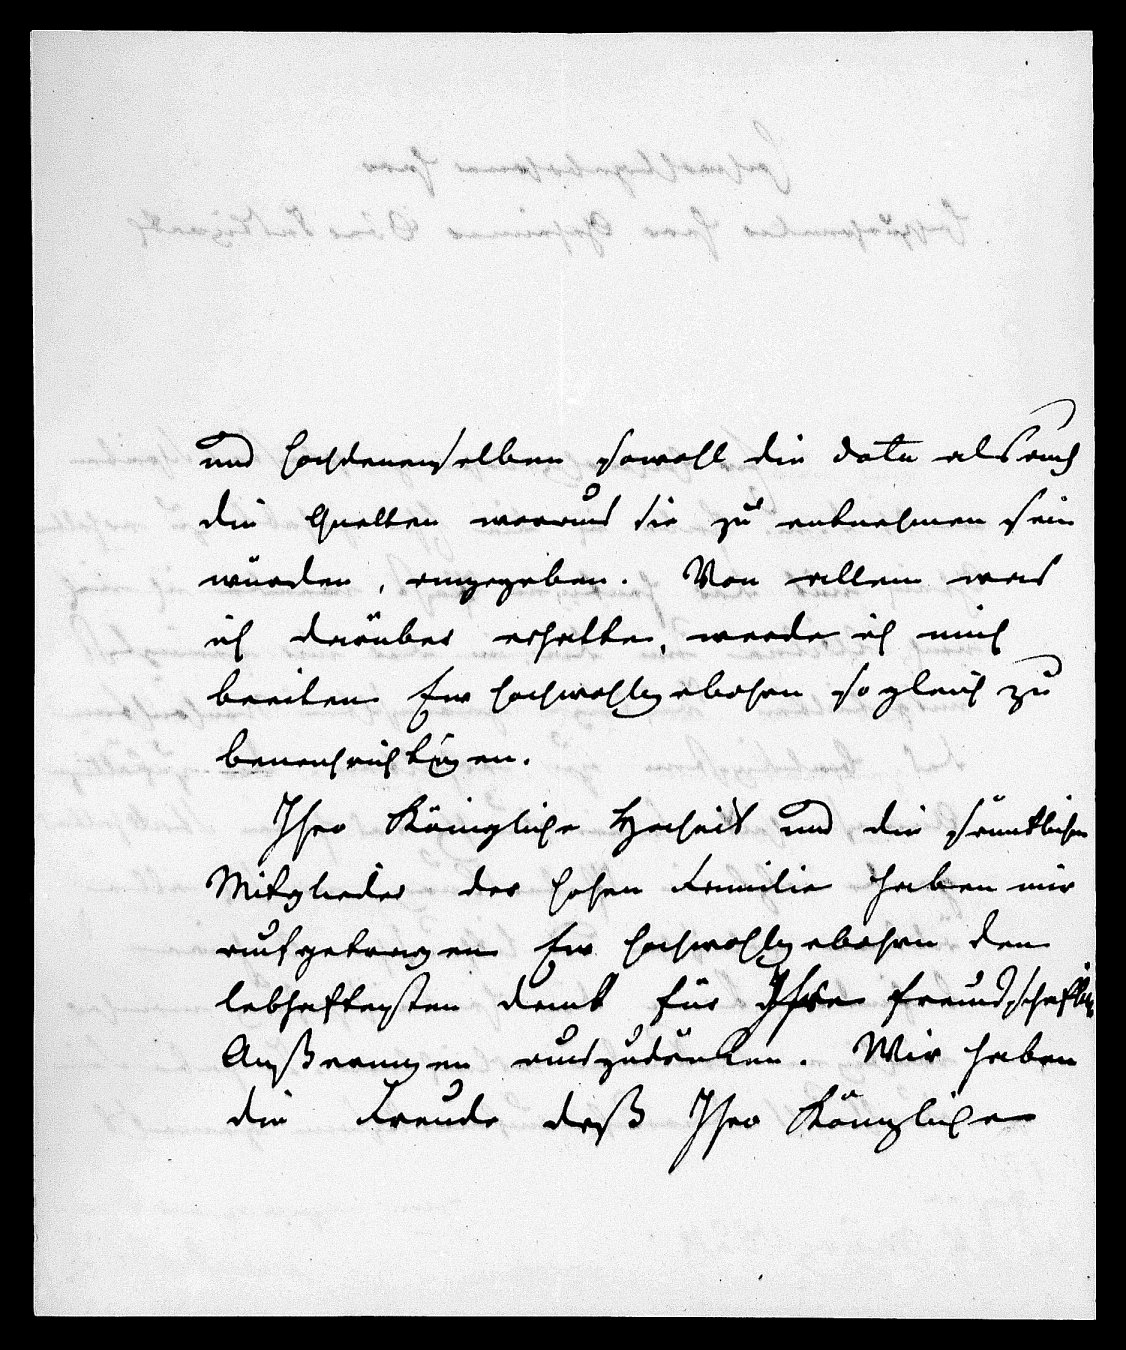 und hochdenenselben sowohl die data als auch
die Quellen woraus sie zu entnehmen sein
würden, angegeben. Von allem was
ich darüber erhalte, werde ich mich
beeilen Ew Hochwohlgebohrn sogleich zu
benachrichtigen.
Ihro Königliche Hocheit und die sämtlichen
Mitglieder der hohen Familie haben mir
aufgetragen Ew Hochwohlgebohrn den
lebhaftesten Dank für Ihre freundschaftlichen
Außerungen auszudrüken. Wir haben
die Freude daß Ihro Königliche